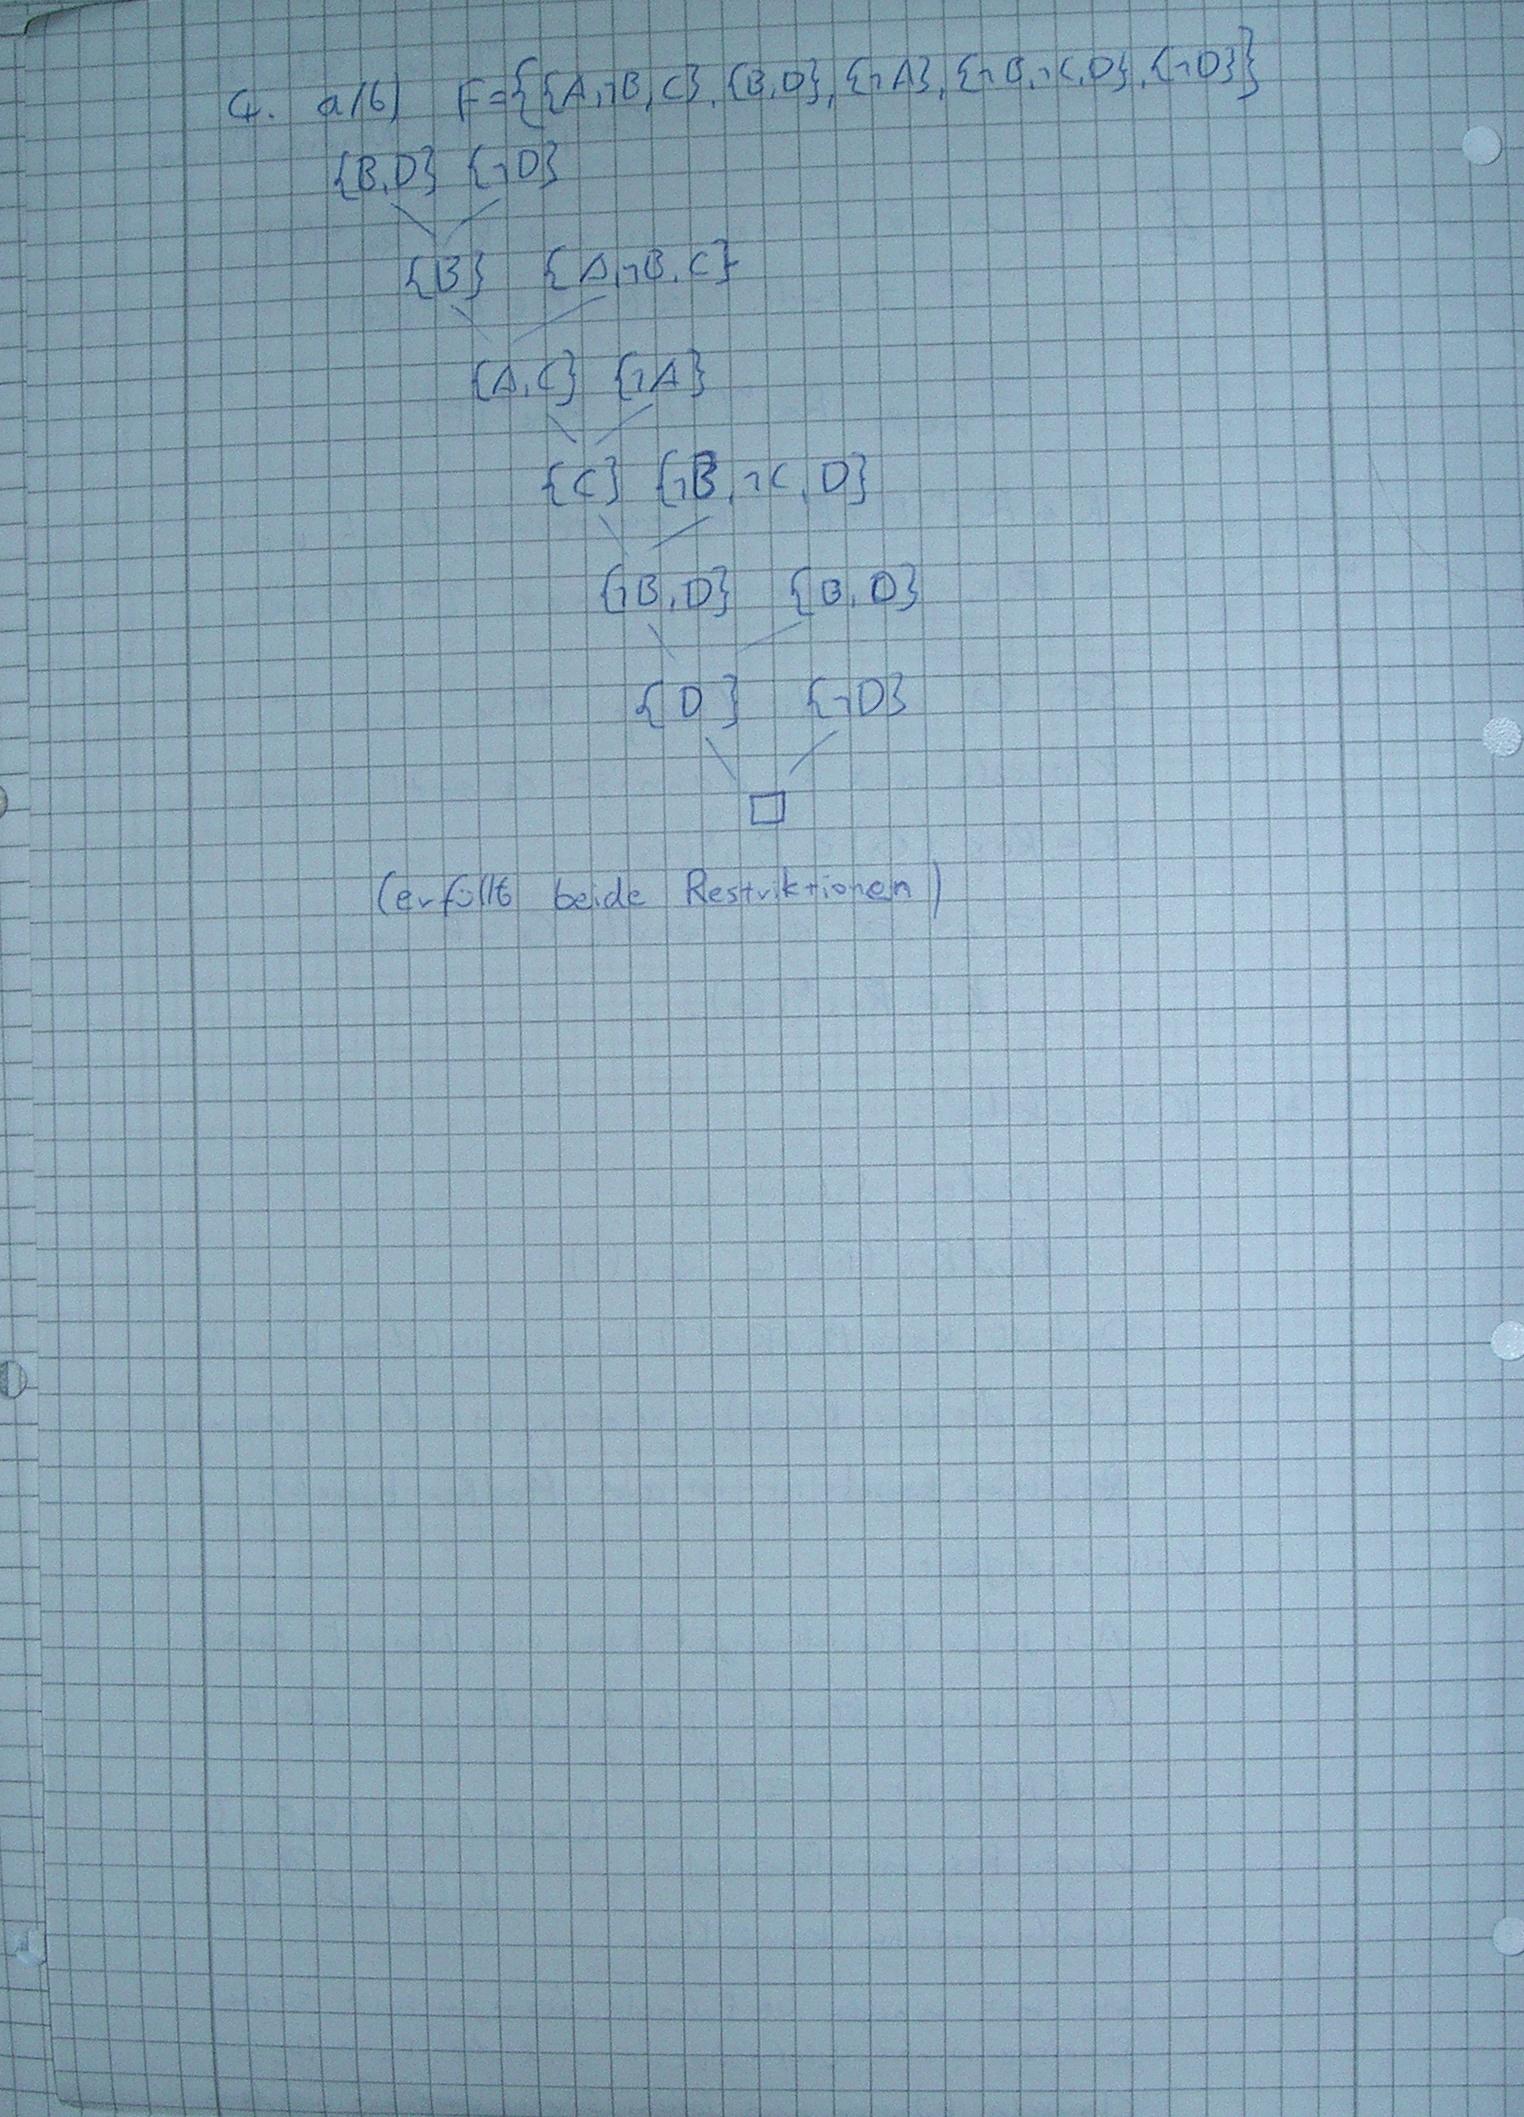 4. a/b) F={{A,¬B,C},{B,D},{¬A},{¬B,¬C,D},{¬D}}
{B,D} {¬D}
{B} {A,¬B,C}
{A,C} {¬A}
{C} {¬B,¬C,D}
{¬B,D} {B,D}
{D} {¬D}
□
(erfüllt beide Restriktionen)